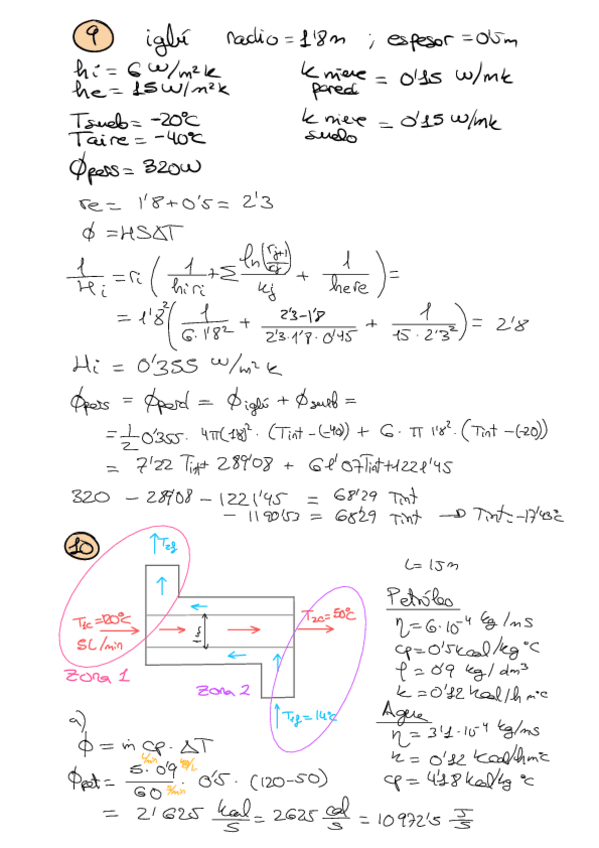 9 iglú radio = 1'8m ; espesor = 0'5m
hi = 6 W/m²k
k nieve pared = 0'15 W/mk
he = 15 W/m²k
Tsuelo = -20ºC
k nieve suelo = 0'15 W/mk
Taire = -40ºC
Φpers = 320W
re = 1'8 + 0'5 = 2'3
Φ = HSΔT
1/Hi = ri ( 1/hiri + Σ ln(rj+1/rj)/kj + 1/here ) =
= 1'8² ( 1/6·1'8² + 2'3-1'8/2'3·1'8·0'45 + 1/15·2'3² ) = 2'8
Hi = 0'355 W/m²k
Φpers = Φperd = Φiglú + Φsuelo =
= 1/2 0'355 · 4π(1'8)² · (Tint - (-40)) + 6 · π 1'8² · (Tint - (-20))
= 7'22 Tint + 289'08 + 61'07Tint + 1221'45
320 - 289'08 - 1221'45 = 68'29 Tint
- 1190'53 = 68'29 Tint → Tint = -17'43ºC
10
T2f
L = 15m
T1c = 120ºC
5L/min
T2c = 50ºC
Zona 1
Zona 2
T1f = 14ºC
Petróleo
η = 6·10⁻⁴ kg/ms
cp = 0'5 kcal/kg ºC
ρ = 0'9 kg/dm³
k = 0'12 kcal/h mºC
Agua
η = 3'1·10⁻⁴ kg/ms
k = 0'12 kcal/hmºC
cp = 4'18 kcal/kg ºC
a)
Φ = ṁ cp · ΔT
Φpet = 5 · 0'9 / 60 · 0'5 · (120-50)
= 2'625 kcal/s = 2625 cal/s = 10972'5 J/s